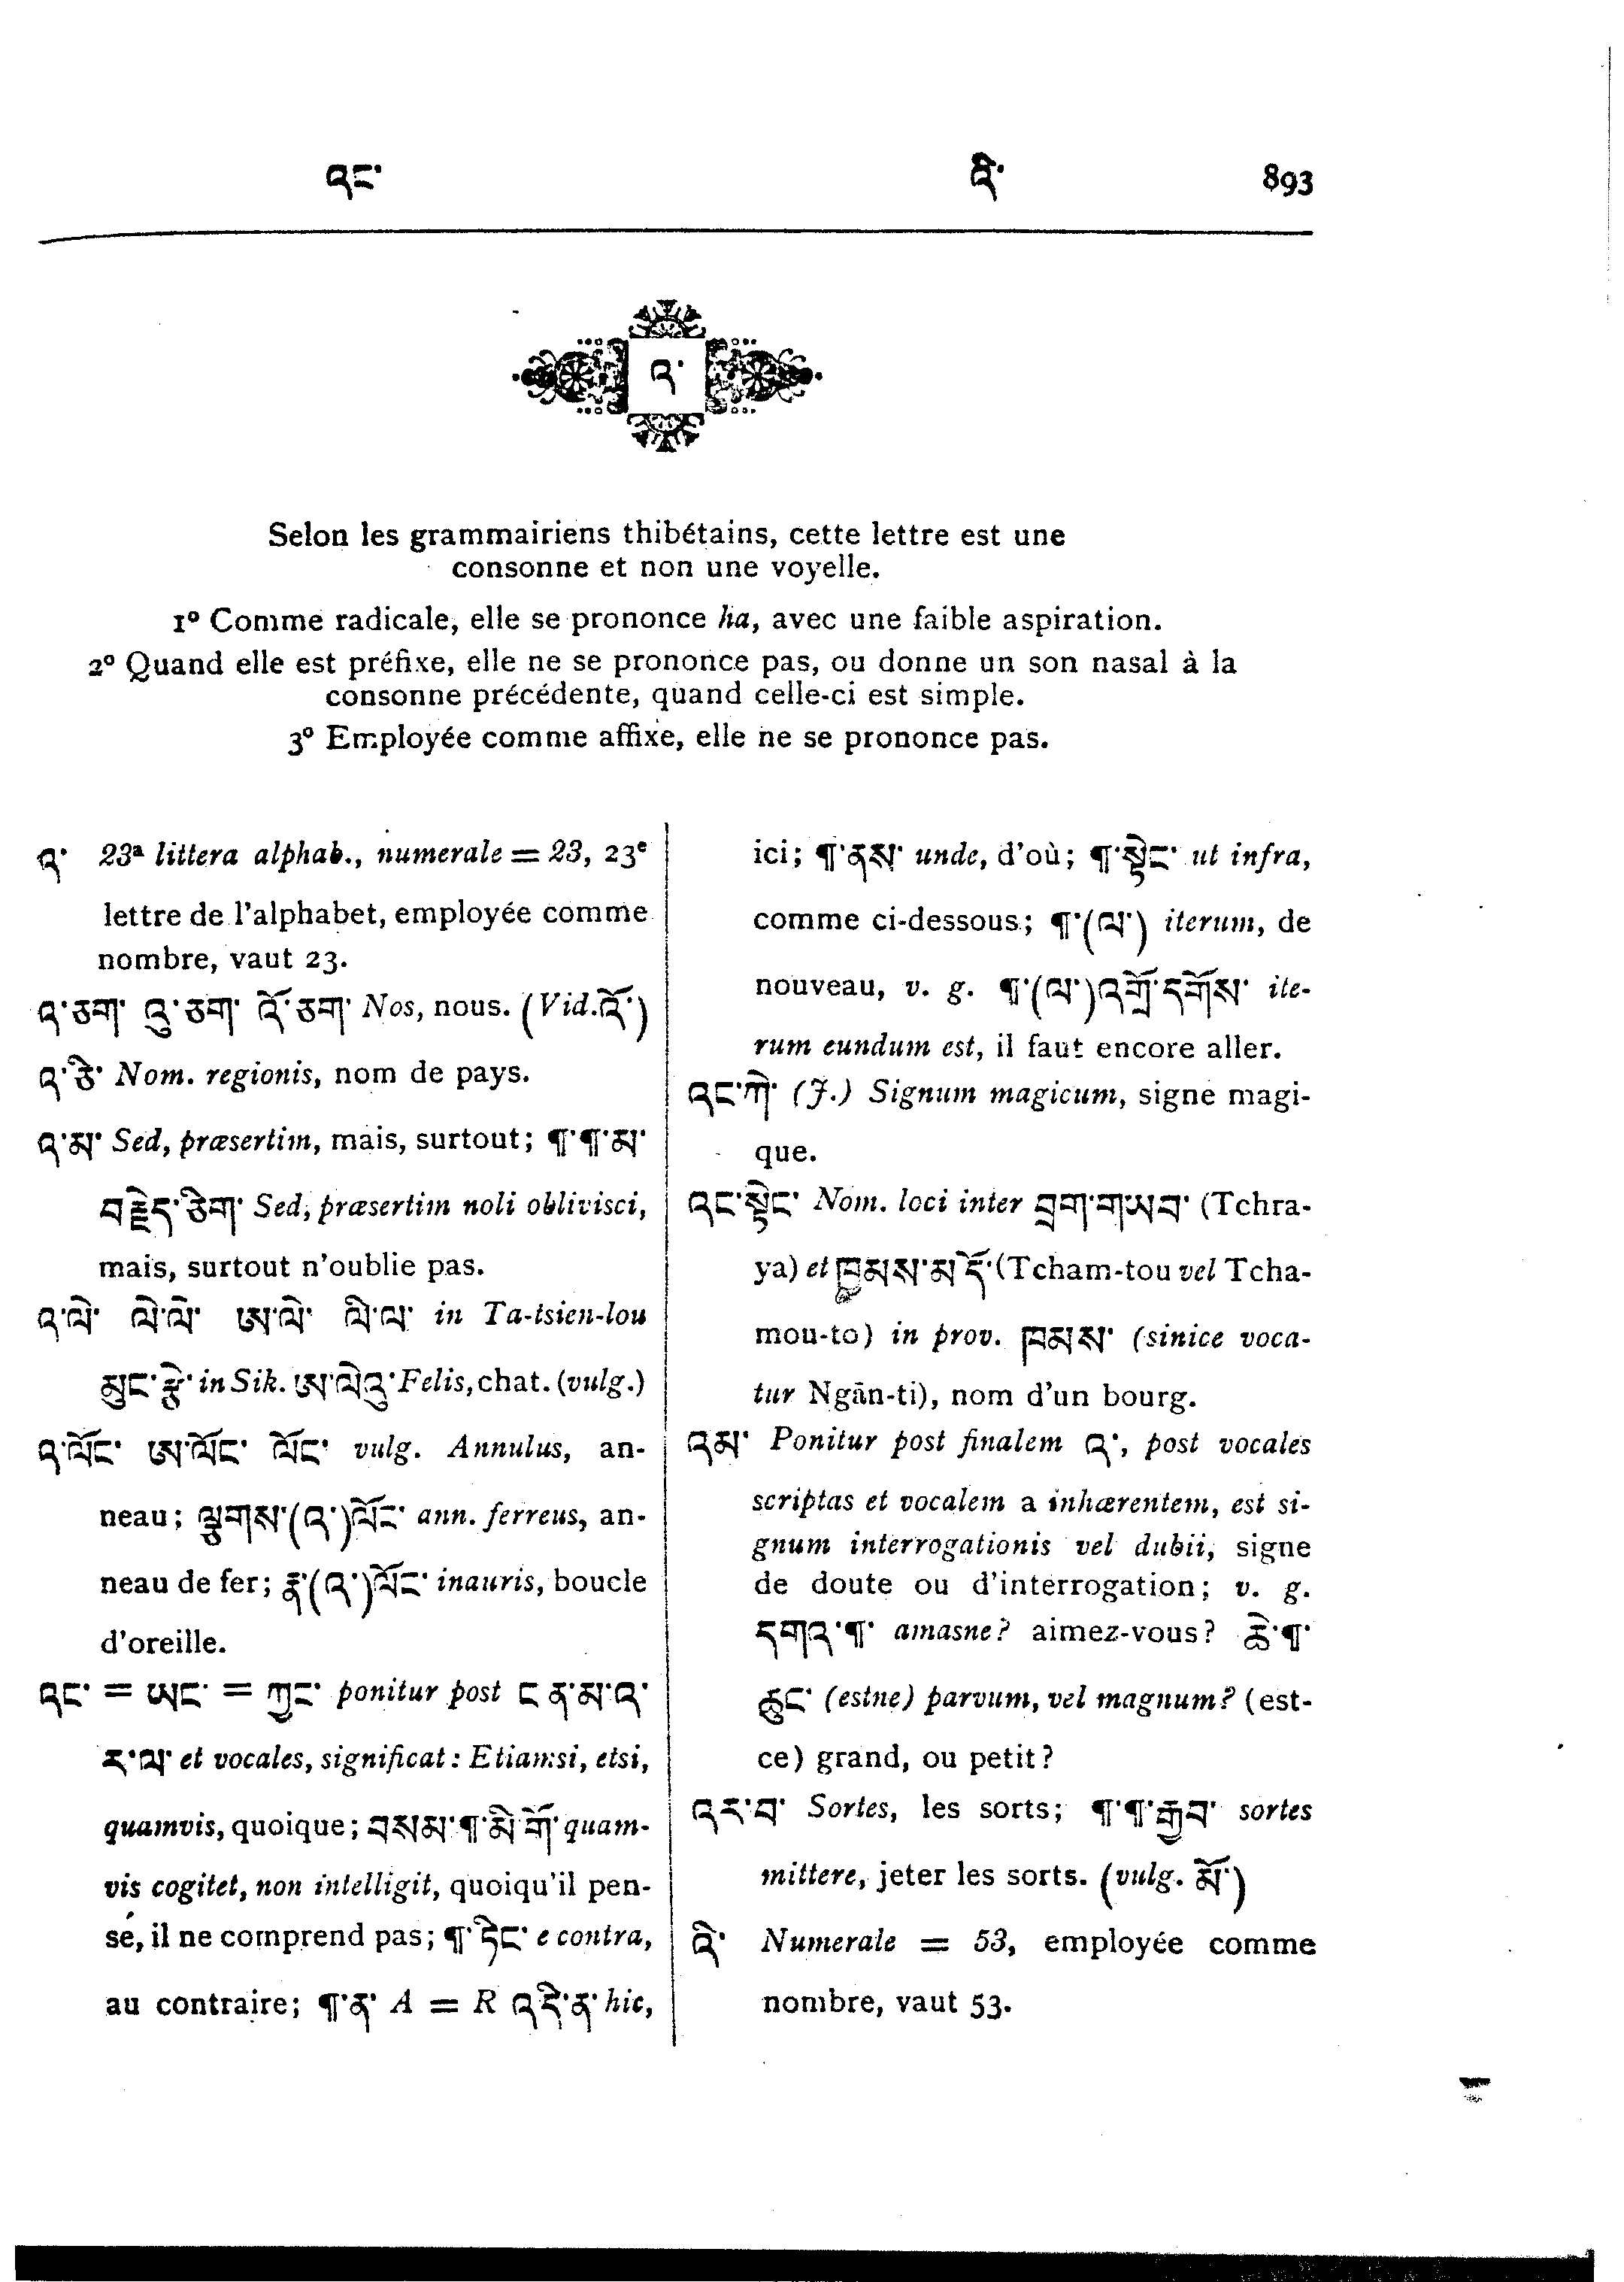 འང་ འི་ 893
འ་
Selon les grammairiens thibétains, cette lettre est une
consonne et non une voyelle.
1º Comme radicale, elle se prononce ha, avec une faible aspiration.
2º Quand elle est préfixe, elle ne se prononce pas, ou donne un son nasal à la
consonne précédente, quand celle-ci est simple.
3º Employée comme affixe, elle ne se prononce pas.
འ་ 23ª littera alphab., numerale = 23, 23ᵉ
lettre de l'alphabet, employée comme
nombre, vaut 23.
འ་ཅག་ འུ་ཅག་ འོ་ཅག་ Nos, nous. (Vid. འོ་)
འ་ཅེ་ Nom. regionis, nom de pays.
འ་མ་ Sed, præsertim, mais, surtout; ¶་¶་མ་
བརྗེད་ཅིག་ Sed, præsertim noli oblivisci,
mais, surtout n'oublie pas.
འ་ལེ་ ལེ་ལེ་ ཨ་ལེ་ ལི་ལ་ in Ta-tsien-lou
མུང་རྩེ་ in Sik. ཨ་ལེའུ་ Felis, chat. (vulg.)
འ་ལོང་ ཨ་ལོང་ ལོང་ vulg. Annulus, an-
neau; ལྕགས་(འ་)ལོང་ ann. ferreus, an-
neau de fer; རྣ་(འ་)ལོང་ inauris, boucle
d'oreille.
འང་ = ཡང་ = ཀྱང་ ponitur post ང ན་མ་འ་
ར་ལ་ et vocales, significat: Etiamsi, etsi,
quamvis, quoique; བསམ་¶་མི་གོ་ quam-
vis cogitet, non intelligit, quoiqu'il pen-
sé, il ne comprend pas; ¶་ཏིང་ e contra,
au contraire; ¶་ན་ A = R འདི་ན་ hic,
ici; ¶་ནས་ unde, d'où; ¶་སྟེང་ ut infra,
comme ci-dessous; ¶་(ལ་) iterum, de
nouveau, v. g. ¶་(ལ་)འགྲོ་དགོས་ ite-
rum eundum est, il faut encore aller.
འང་ཀེ་ (J.) Signum magicum, signe magi-
que.
འང་སྟེང་ Nom. loci inter བྲག་གཡབ་ (Tchra-
ya) et ཁྲམས་མདོ་ (Tcham-tou vel Tcha-
mou-to) in prov. ཁམས་ (sinice voca-
tur Ngān-ti), nom d'un bourg.
འམ་ Ponitur post finalem འ་, post vocales
scriptas et vocalem a inhærentem, est si-
gnum interrogationis vel dubii, signe
de doute ou d'interrogation; v. g.
དགའ་¶་ amasne? aimez-vous? ཆེ་¶་
ཆུང་ (estne) parvum, vel magnum? (est-
ce) grand, ou petit?
འར་བ་ Sortes, les sorts; ¶་¶་རྒྱབ་ sortes
mittere, jeter les sorts. (vulg. མོ་)
འི་ Numerale = 53, employée comme
nombre, vaut 53.